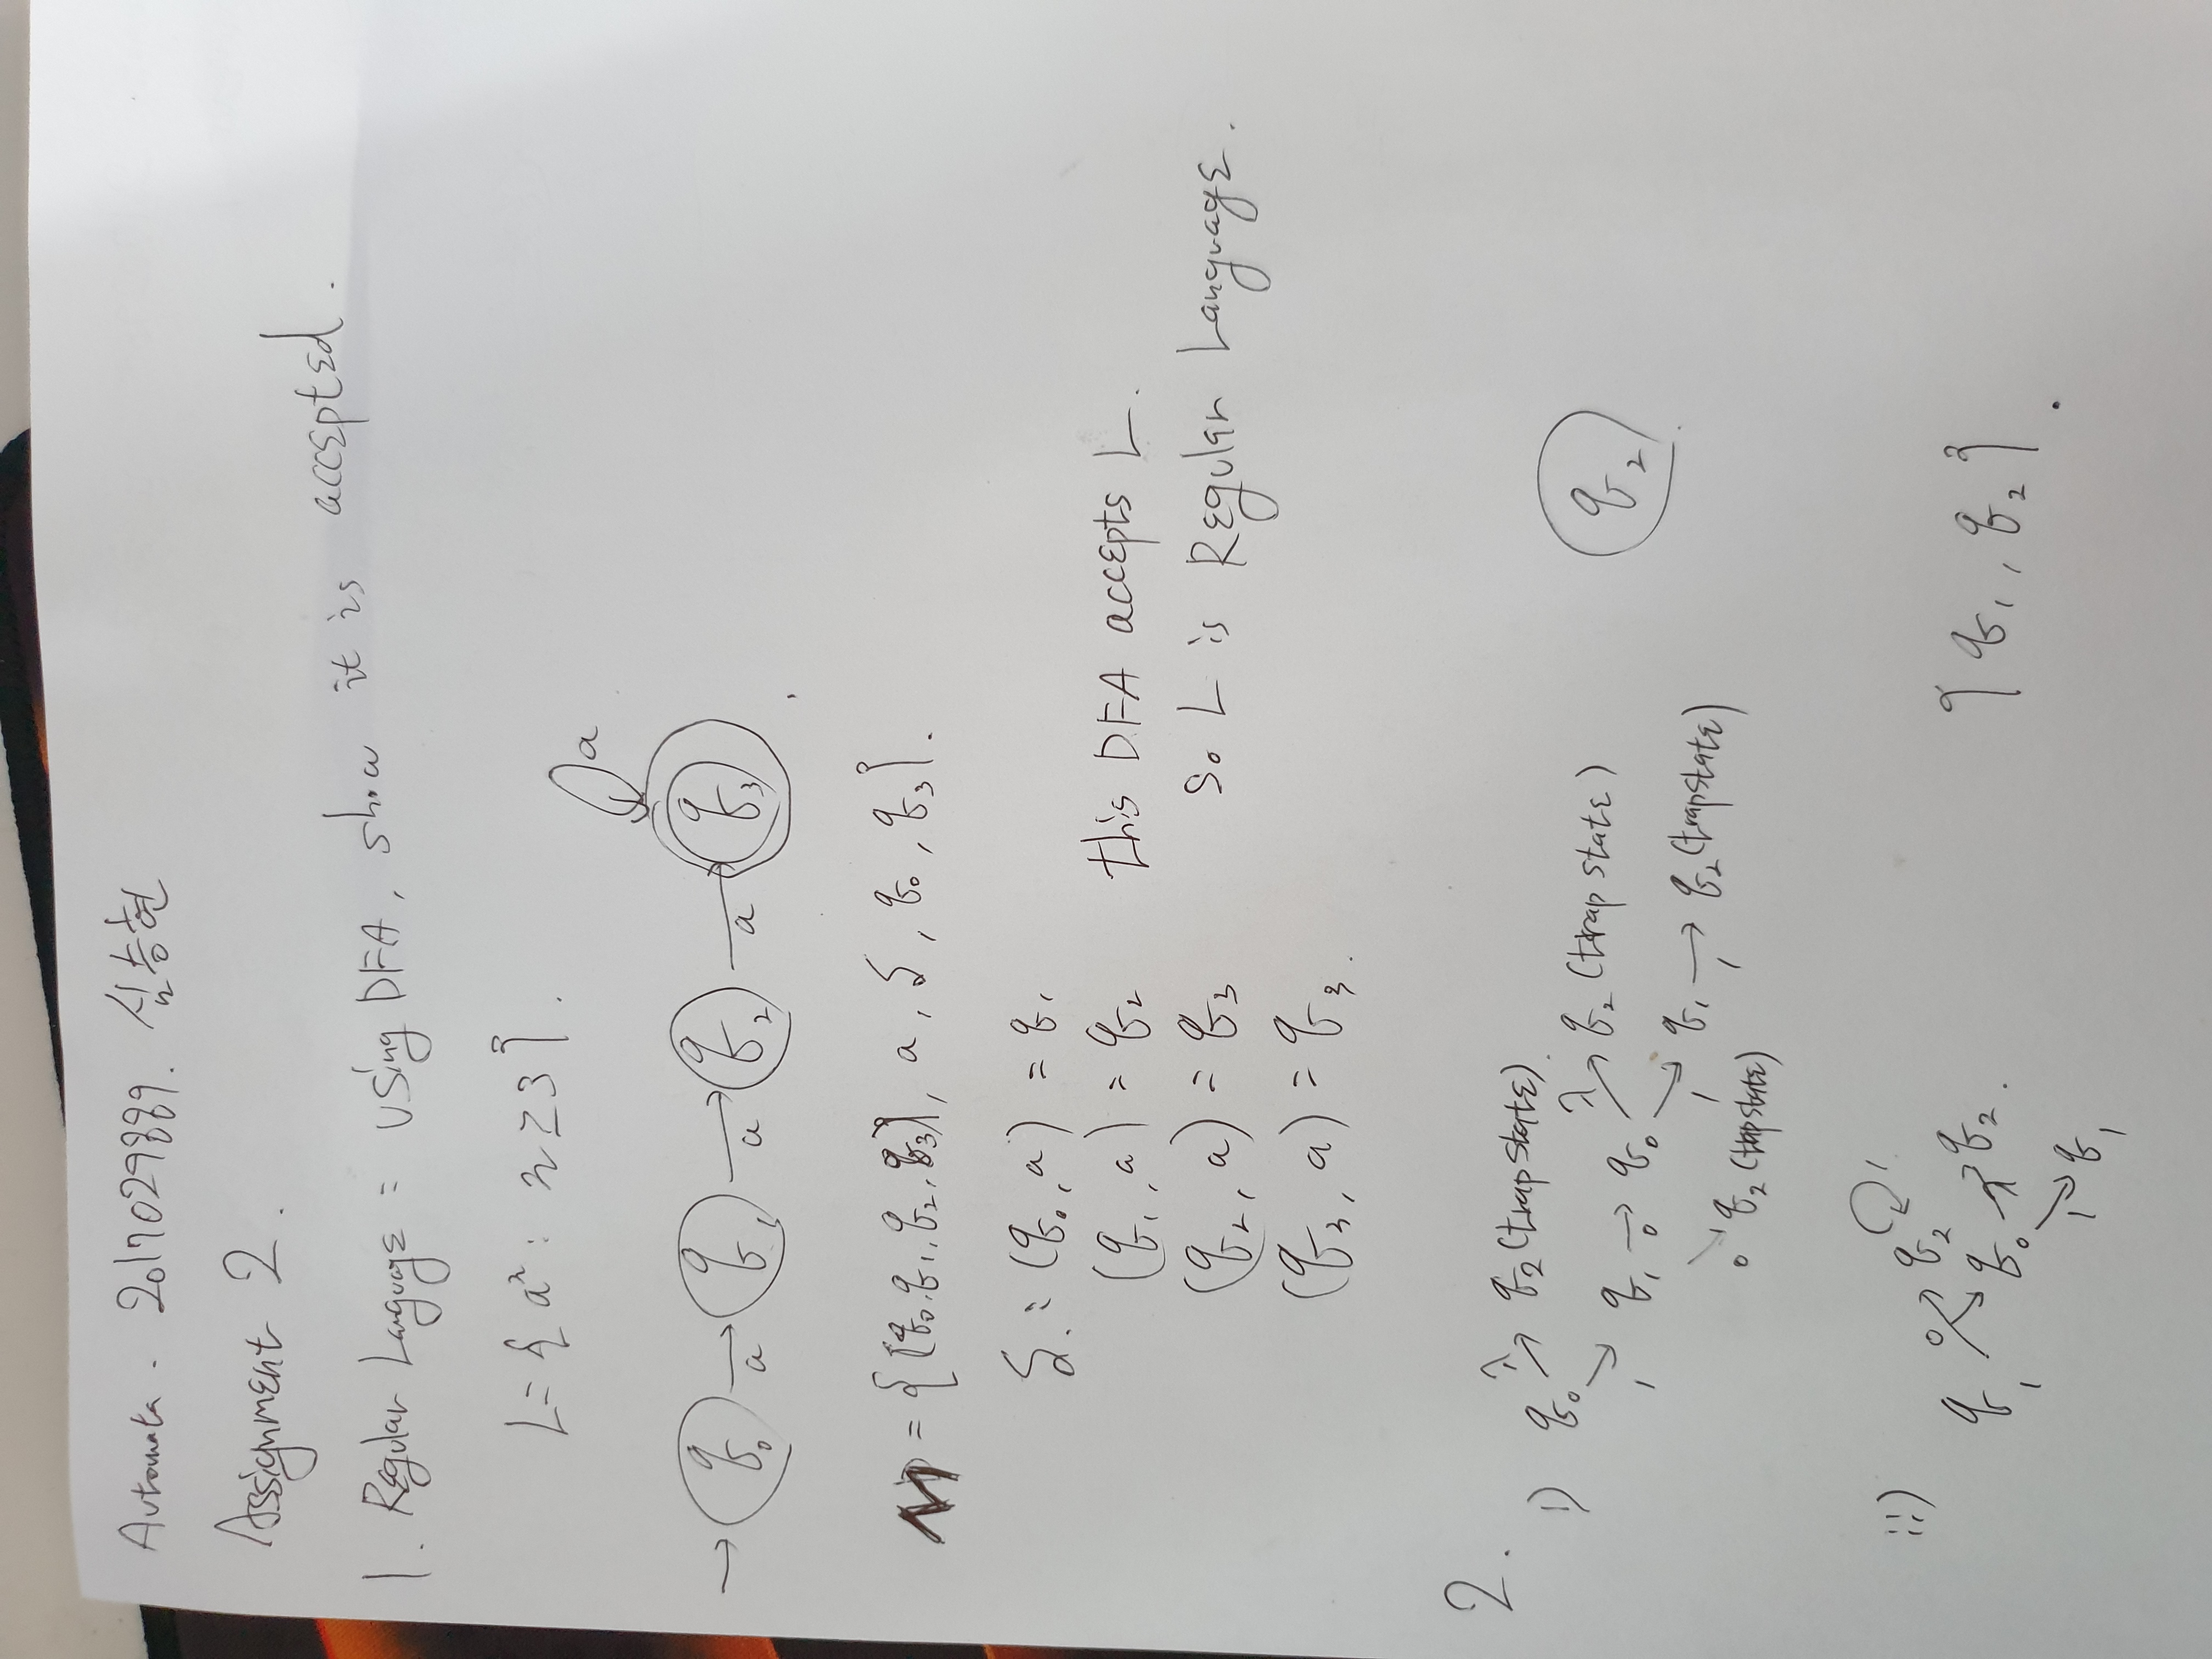 Automata . 2017029889. 심승현
Assignment 2.
1. Regular Language = using DFA, show it is accepted.
L = { aⁿ : n ≥ 3 }.
a
→ q₀ → q₁ → q₂ → q₃
a a a
M = { {q₀, q₁, q₂, q₃}, a, δ, q₀, q₃ }.
δ : (q₀, a) = q₁
(q₁, a) = q₂ this DFA accepts L.
(q₂, a) = q₃ So L is Regular Language.
(q₃, a) = q₃.
2.
i) q₀ λ↗ q₂ (trap state)
↘ 1 q₁ → 0 q₀ λ↗ q₂ (trap state) q₂
↘ 1 q₁ → 1 q₂ (trap state)
↘ 0 q₂ (trap state)
ii) q₂ 1
q₁ 0 q₀ λ q₂. { q₁, q₂ }.
1 q₁